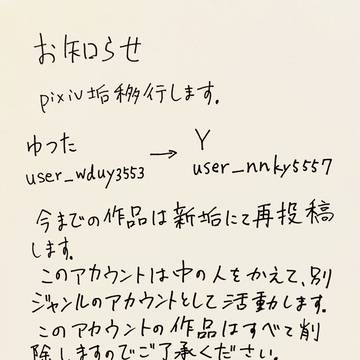 お知らせ
pixiv垢移行します。
ゆつた → Y
user_wduy3553 user_nnky5557
今までの作品は新垢にて再投稿
します。
このアカウントは中の人をかえて、別
ジャンルのアカウントとして活動します。
このアカウントの作品はすべて削
除しますのでご了承ください。